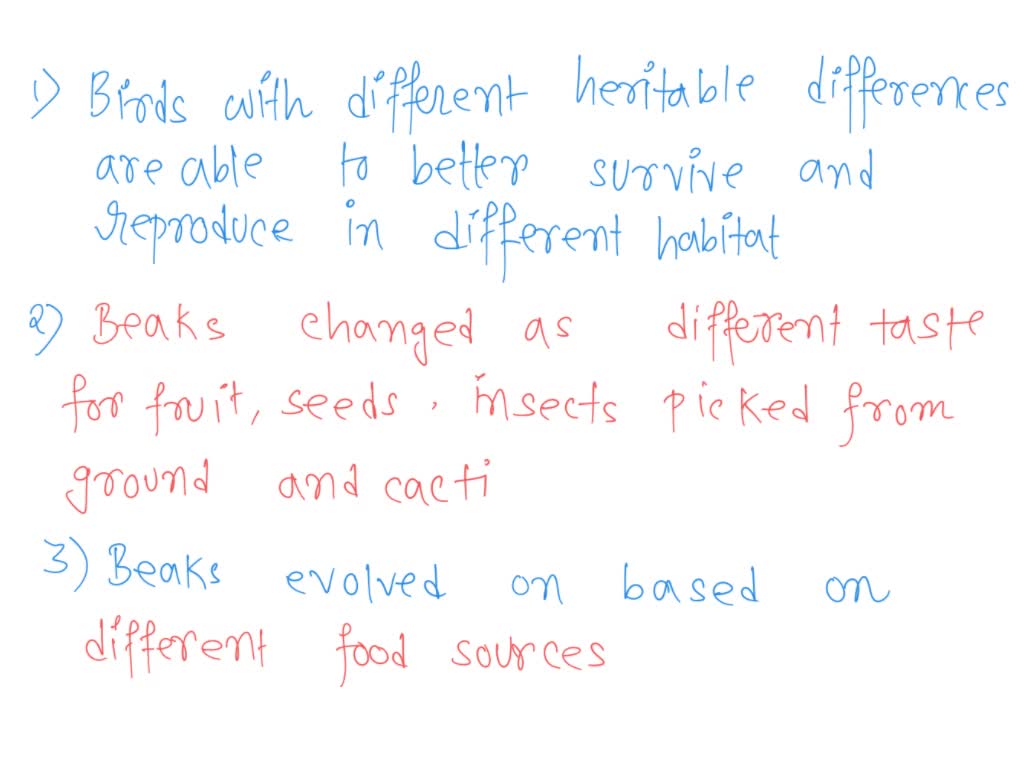 1) Birds with different heritable differences
are able to better survive and
reproduce in different habitat
2) Beaks changed as different taste
for fruit, seeds, insects picked from
ground and cacti
3) Beaks evolved on based on
different food sources